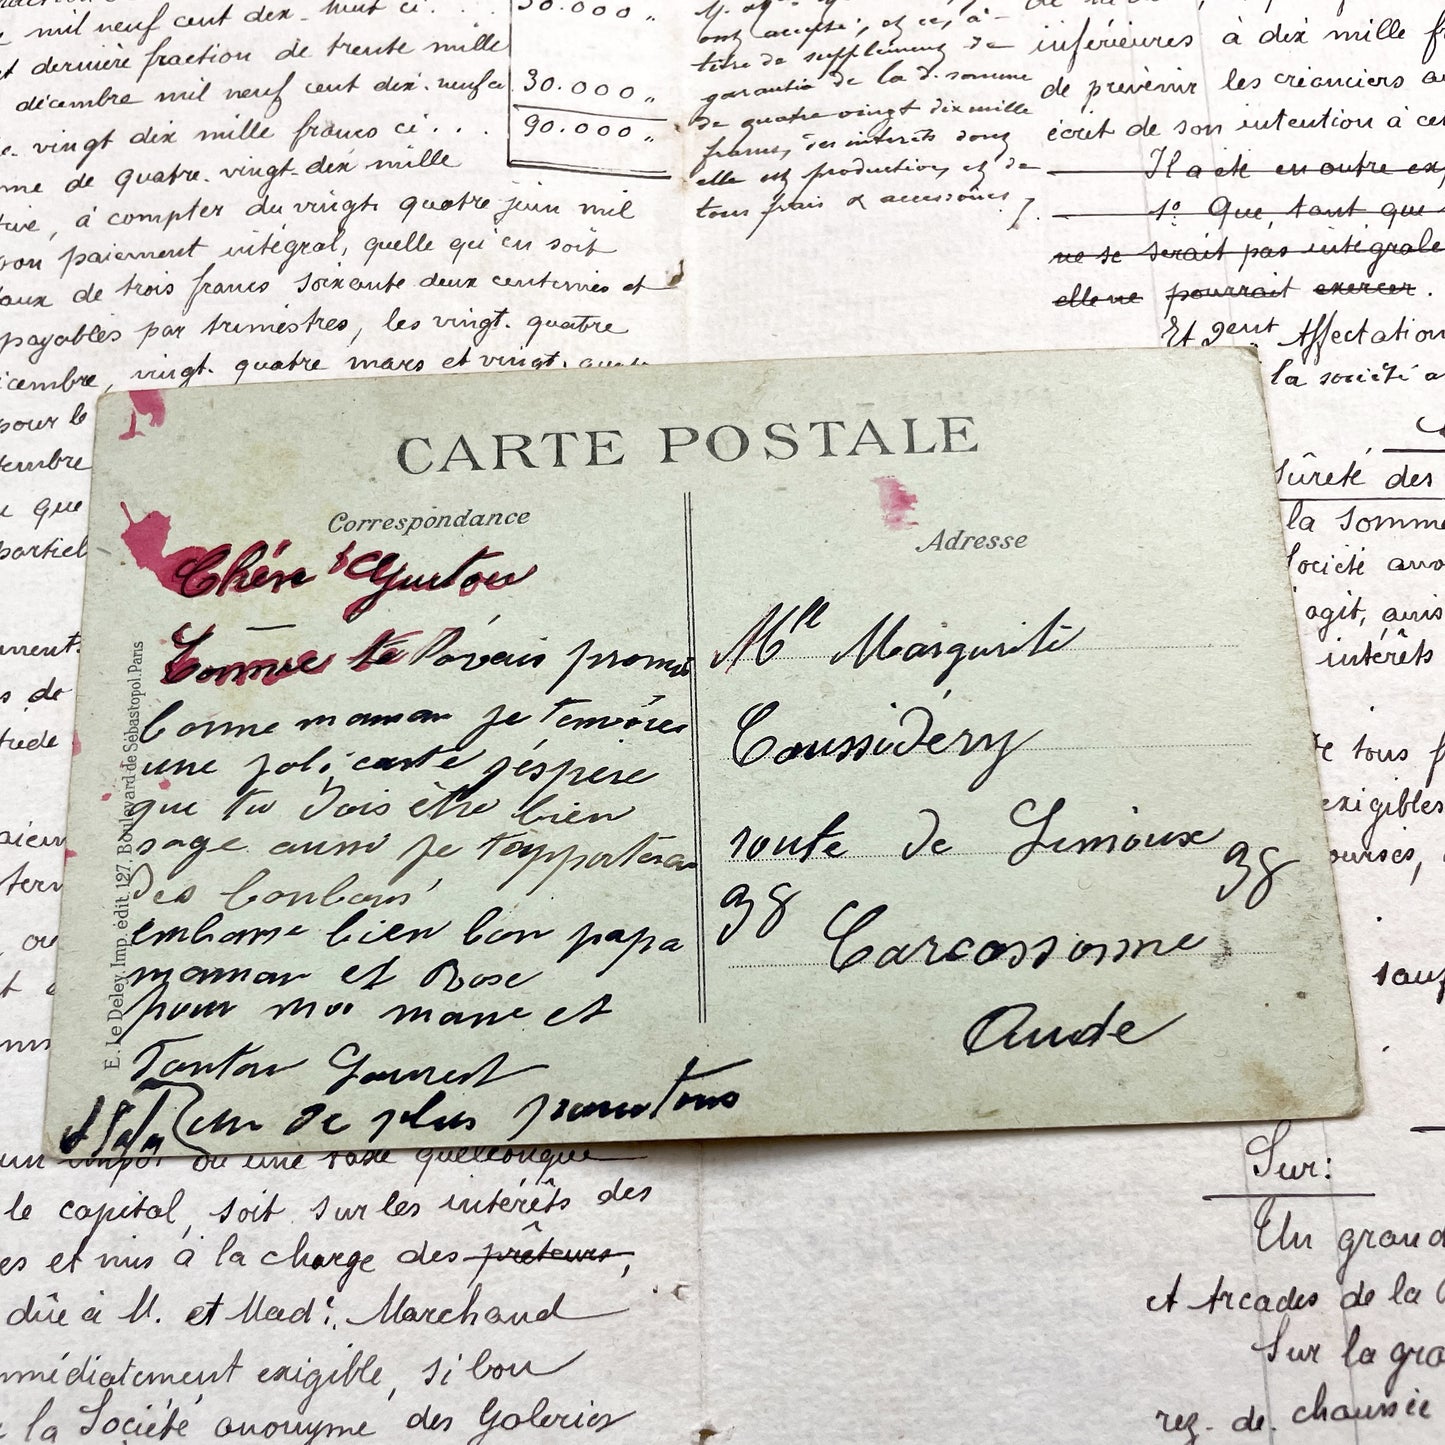 mil neuf cent dix-huit ci . . .
30.000 "
et dernière fraction de trente mille
décembre mil neuf cent dix-neuf ci
30.000 "
vingt dix mille francs ci . . .
90.000 "
me de quatre-vingt-dix mille
à compter du vingt quatre juin mil
paiement intégral, quelle qu'en soit
taux de trois francs soixante deux centimes et
payables par trimestres, les vingt-quatre
vingt-quatre mars et vingt-
pour le
que
partiel
titre de supplément de
garantie de la d. somme
de quatre vingt dix mille
francs, des intérêts dont
elle est productive, et de
tous frais & accessoires
inférieures à dix mille
de prévenir les créanciers
écrit de son intention à
Il a été en outre
1° Que, tant que
ne se serait pas intégrale
elle ne pourrait exercer.
Et Affectation
la société a
Sûreté des
la somme
Société
agit,
intérêts
tous
exigibles
CARTE POSTALE
Correspondance
Chère
Comme te l'avais promis
bonne maman je t'envoies
une joli carte j'éspère
que tu dois être bien
sage aussi je t'apporterai
des bonbons
embrasse bien bon papa
maman et Rose
pour moi et
Tonton
de plus pour tous
E. Le Deley, Imp. édit. 127, Boulevard de Sébastopol, Paris
Adresse
Mlle Marguerite
Coussidéry
route de Limoux 98
98 Carcassonne
Aude
un impôt ou une taxe quelconque
le capital, soit sur les intérêts des
es et mis à la charge des prêteurs,
dûe à M. et Made. Marchand
immédiatement exigible, si bon
la Société anonyme des Galeries
Sur:
Un grand
et Arcades de la
Sur la
rez-de-chaussée